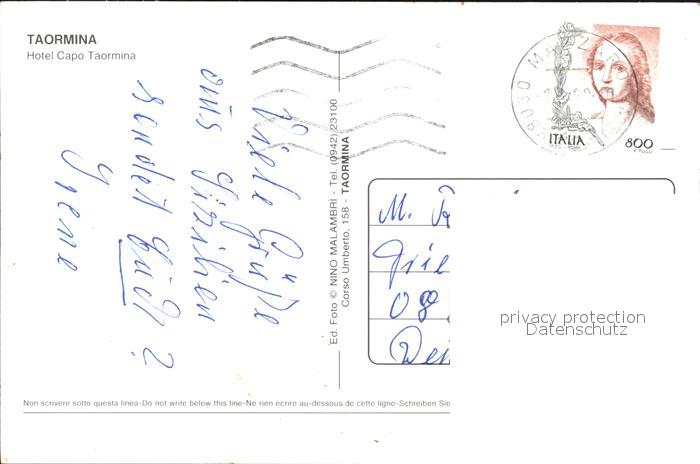 TAORMINA
Hotel Capo Taormina
Viele Grüße
aus Sizilien
sendet Euch
Irene
Ed. Foto © NINO MALAMBRÌ - Tel. (0942) 23100
Corso Umberto, 158 - TAORMINA
ITALIA
800
M.
08
privacy protection
Datenschutz
Non scrivere sotto questa linea-Do not write below this line-Ne rien écrire au-dessous de cette ligne-Schreiben Sie